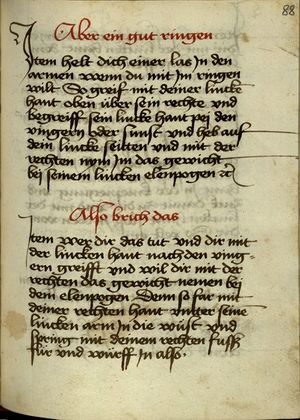 88
Aber ein gut ringen
Item helt dich einer las In den
armen wenn du mit Im ringen
wilt So greif mit deiner lincke
hant oben über sein rechte vnd
begreiff sein lincke hant pei den
vingern oder sunst vnd heb auf
dein lincke seitten vnd mit der
rechten nym Im das gewicht
bei seinem lincken elenpogen etc
Also brich das
Item wer dir das tut vnd dir mit
der lincken hant nach den ving-
ern greifft vnd wil dir mit der
rechten das gewicht nemen bei
dem elenpogen Dem so far mit
deiner rechten hant vntter seine
lincken arm In die wüst vnd
spring mit deinem rechten fuss
für vnd würff in also